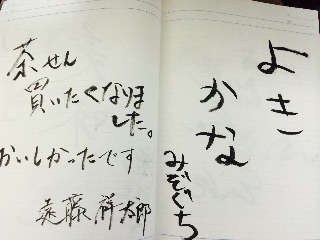 よき
かな
みぞぐち
茶せん
買いたくなりま
した。
おいしかったです
遠藤祥太郎